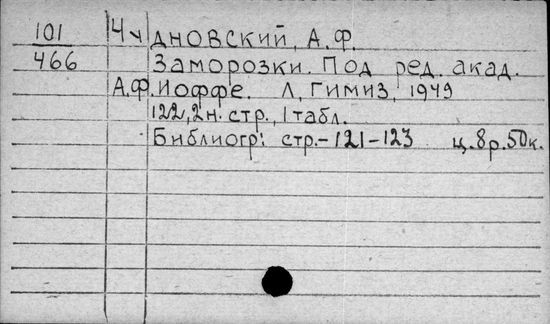 101 Чудновский, А.Ф.
466 Заморозки. Под ред. акад.
А.Ф. Иоффе. Л, Гимиз, 1949
122, 2н. стр., 1 табл.
Библиогр: стр.-121-123 ц.8р.50к.